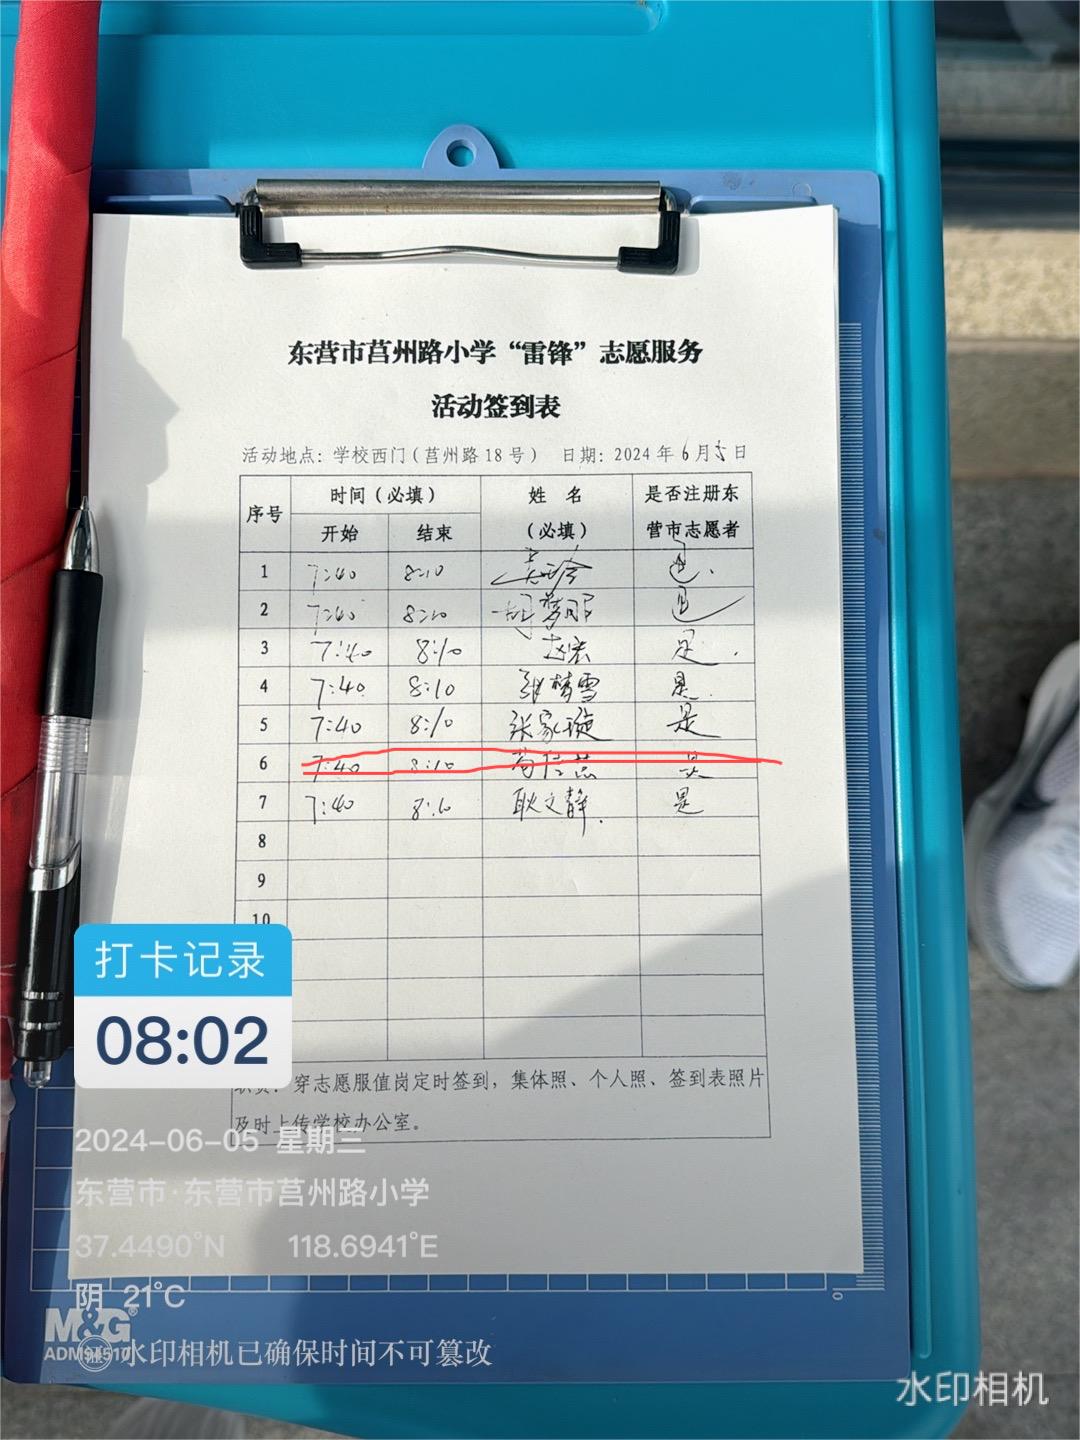 东营市莒州路小学“雷锋”志愿服务
活动签到表
活动地点：学校西门（莒州路18号） 日期：2024年6月5日
序号 时间（必填） 姓 名 是否注册东
开始 结束 （必填） 营市志愿者
1 7:40 8:10 是.
2 7:40 8:10 胡梦那 是
3 7:40 8:10 赵宏 是.
4 7:40 8:10 张梦雪 是.
5 7:40 8:10 张家璇 是
6 7:40 8:10 是
7 7:40 8:10 耿文静. 是
8
9
10
打卡记录
08:02
职责：穿志愿服值岗定时签到，集体照、个人照、签到表照片
及时上传学校办公室。
2024-06-05 星期三
东营市·东营市莒州路小学
37.4490°N 118.6941°E
阴 21°C
M&G
水印相机已确保时间不可篡改
水印相机